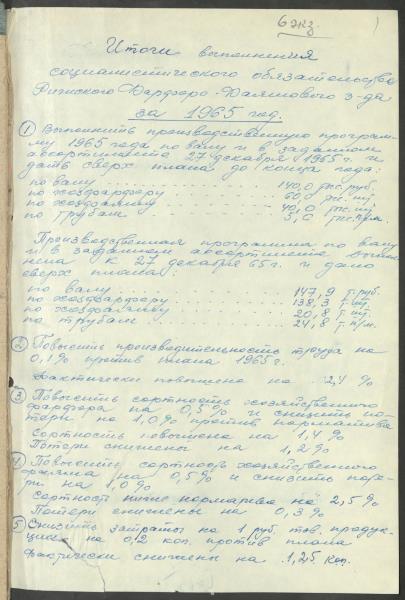 6 экз.
Итоги выполнения
социалистического обязательства
Рижского Фарфоро-Фаянсового з-да
за 1965 год.
① Выполнить производственную програм-
му 1965 года по валу и в заданном
ассортименте 27 декабря 1965 г. и
дать сверх плана до конца года:
по валу . . . . . 140,0 тыс. руб.
по хозфарфору . . . . . 60,0 тыс. шт.
по хозфаянсу . . . . . 40,0 тыс. шт.
по трубам . . . . . 5,0 тыс. п/м.
Производственная программа по валу
и в заданном ассортименте выпол-
нена к 27 декабря 65 г. и дано
сверх плана:
по валу . . . . . 147,9 т. руб.
по хозфарфору . . . . . 138,3 т. шт.
по хозфаянсу . . . . . 20,8 т. шт.
по трубам . . . . . 24,8 т. п/м.
② Повысить производительность труда на
0,1% против плана 1965 г.
Фактически повышена на 2,4 %
③ Повысить сортность хозяйственного
фарфора на 0,5 % и снизить по-
тери на 1,0 % против норматива
Сортность повышена на 1,4 %
Потери снижены на 1,2 %
④ Повысить сортность хозяйственного
фаянса на 0,5 % и снизить поте-
ри на 1,0 %.
Сортность ниже норматива на 2,5 %
Потери снижены на 0,3 %
⑤ Снизить затраты на 1 руб. тов. продук-
ции на 0,2 коп. против плана
Фактически снижены на 1,25 коп.